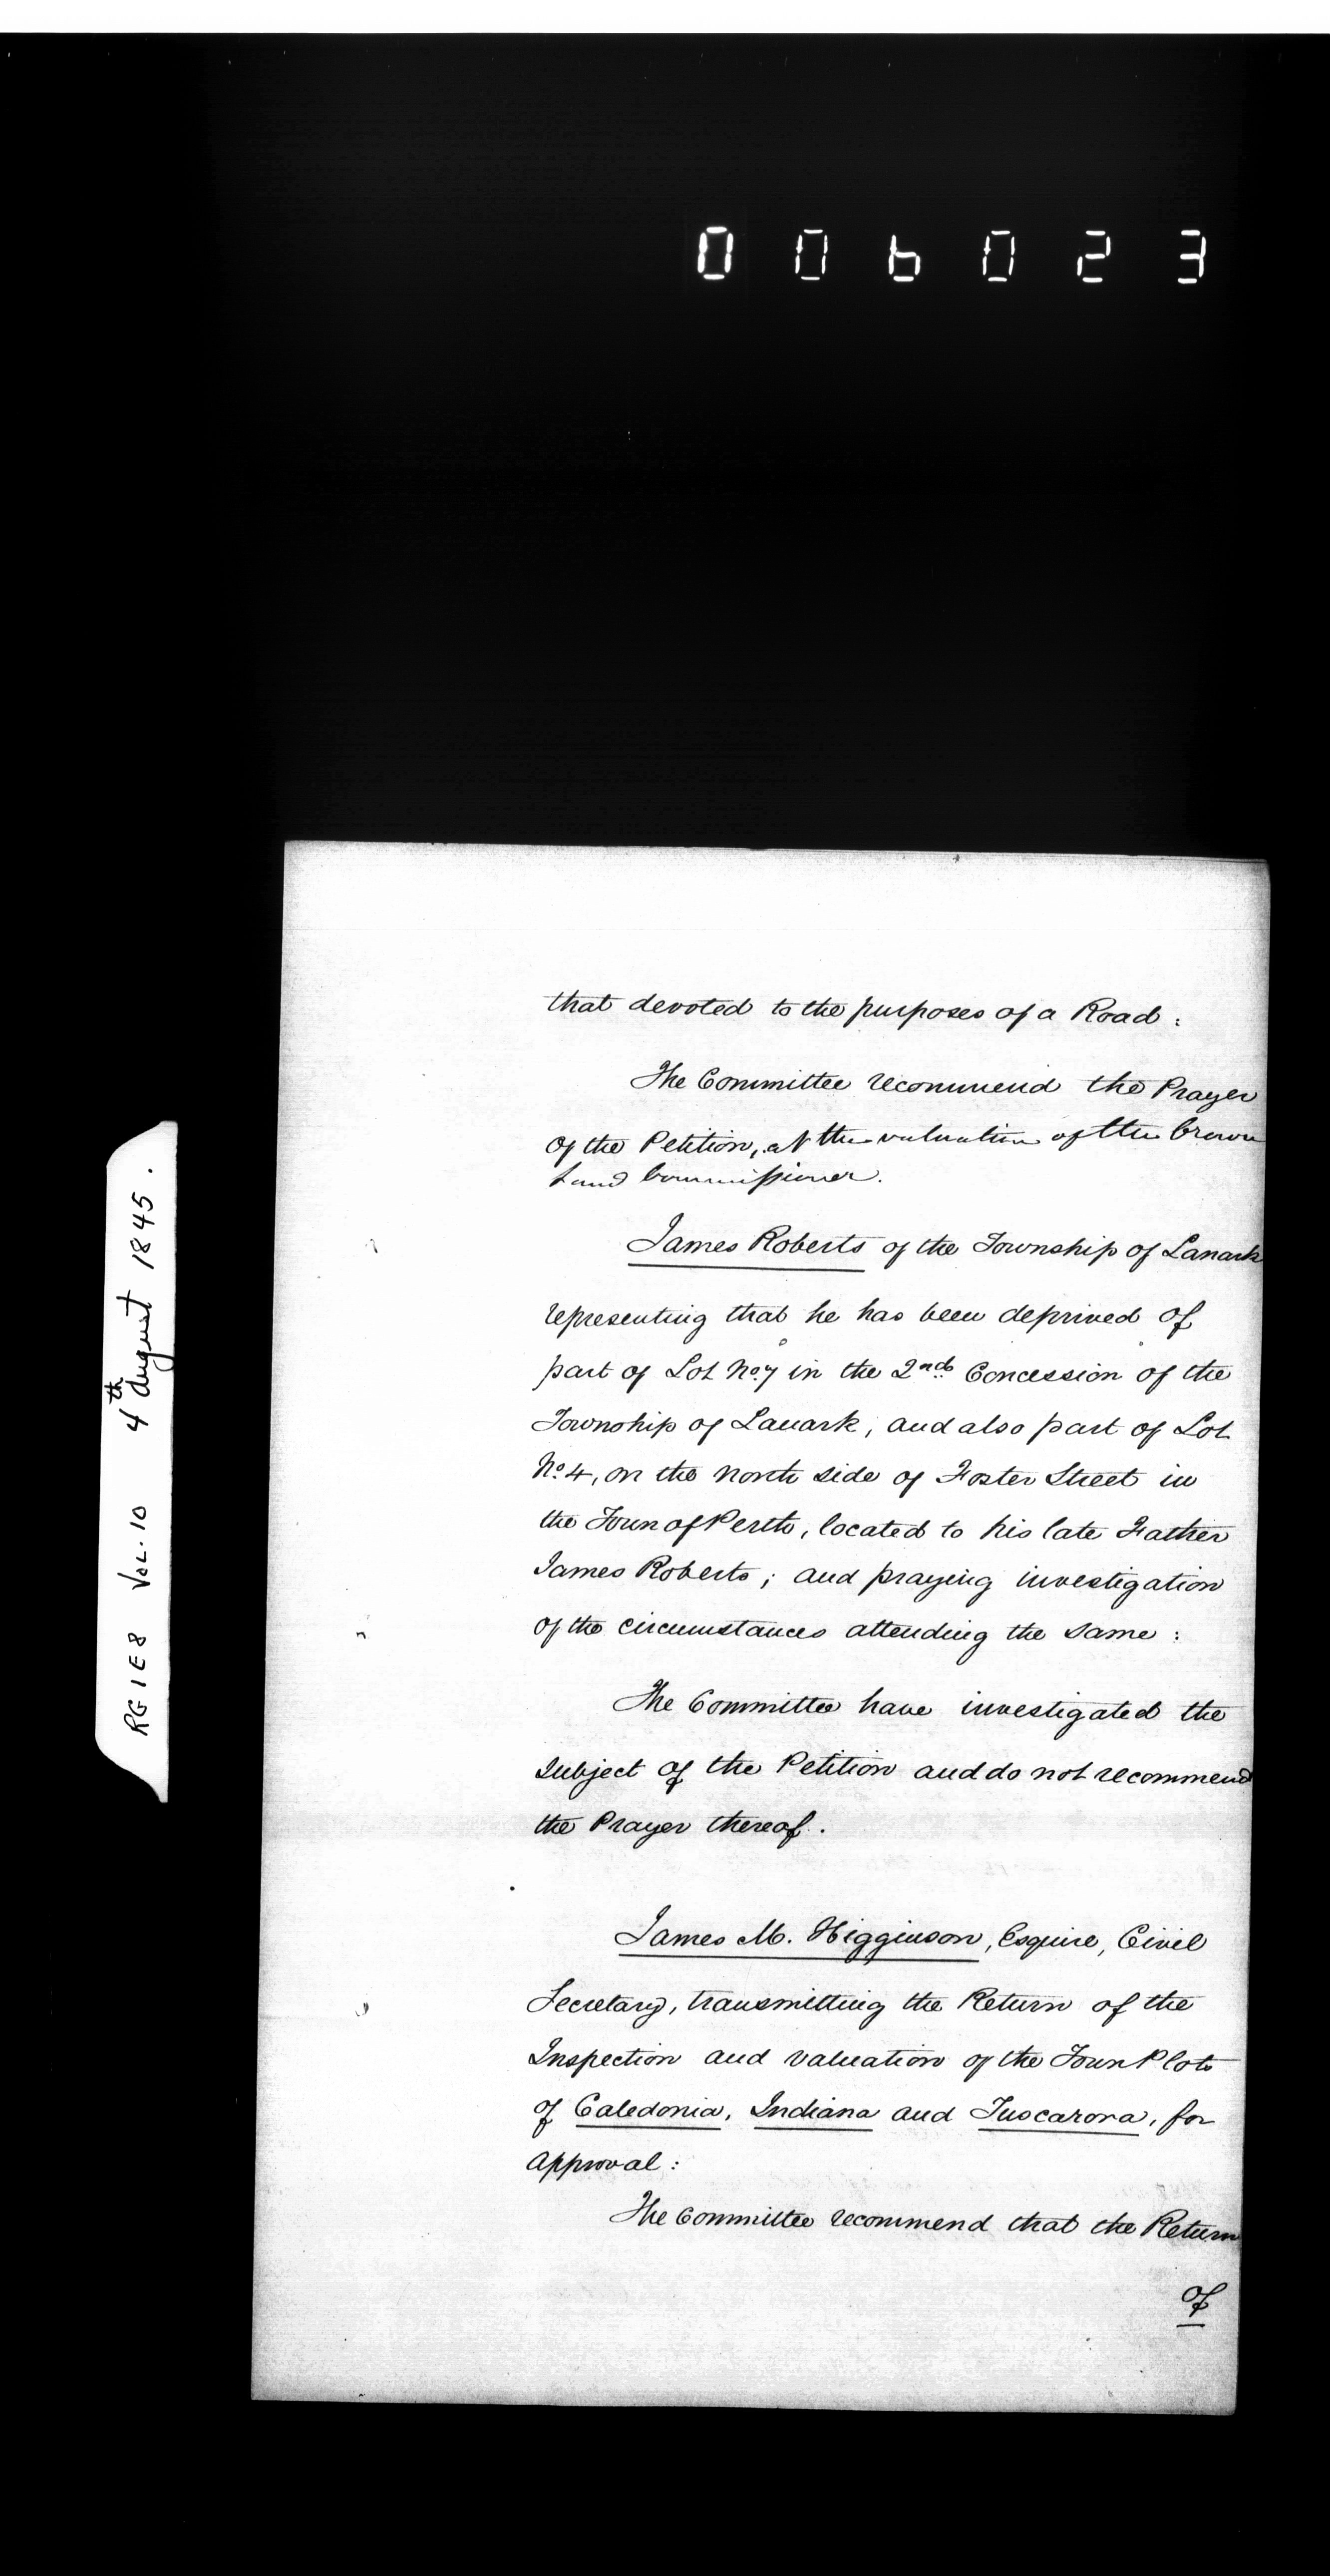 006023
RG 1 E 8 VOL. 10 4th August 1845.
that devoted to the purposes of a Road:
The Committee recommend the Prayer
of the Petition, at the valuation of the Crown
Land Commissioner.
James Roberts of the Township of Lanark
representing that he has been deprived of
part of Lot No. 7 in the 2nd Concession of the
Township of Lanark, and also part of Lot
No. 4, on the north side of Foster Street in
the Town of Perth, located to his late Father
James Roberts; and praying investigation
of the circumstances attending the same:
The Committee have investigated the
subject of the Petition and do not recommend
the Prayer thereof.
James M. Higginson, Esquire, Civil
Secretary, transmitting the Return of the
Inspection and valuation of the Town Plots
of Caledonia, Indiana and Tuscarora, for
approval:
The Committee recommend that the Return
of